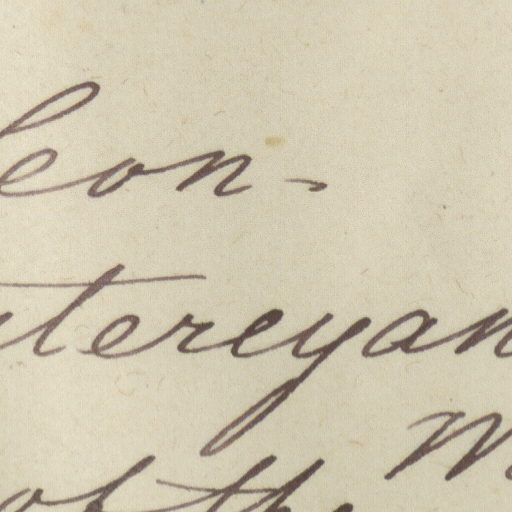 leon-
tereyan
M
of the